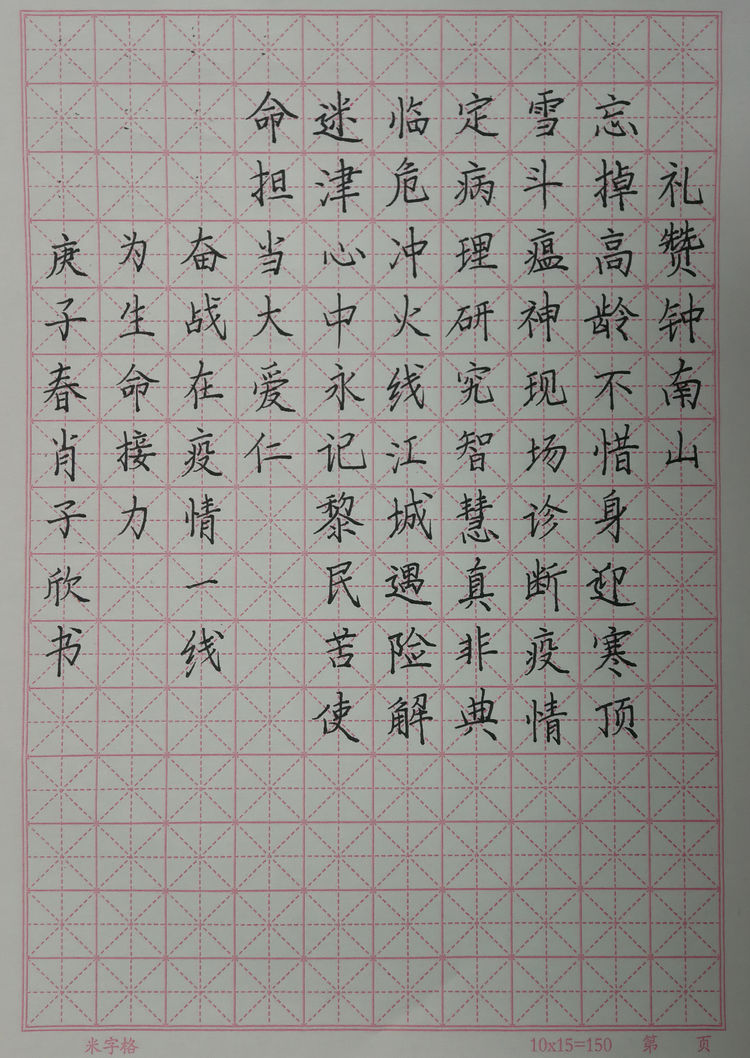 礼赞钟南山
忘掉高龄不惜身迎寒顶
雪斗瘟神现场诊断疫情
定病理研究智慧真非典
临危冲火线江城遇险解
迷津心中永记黎民苦使
命担当大爱仁
奋战在疫情一线
为生命接力
庚子春肖子欣书
米字格
10x15=150 第 页